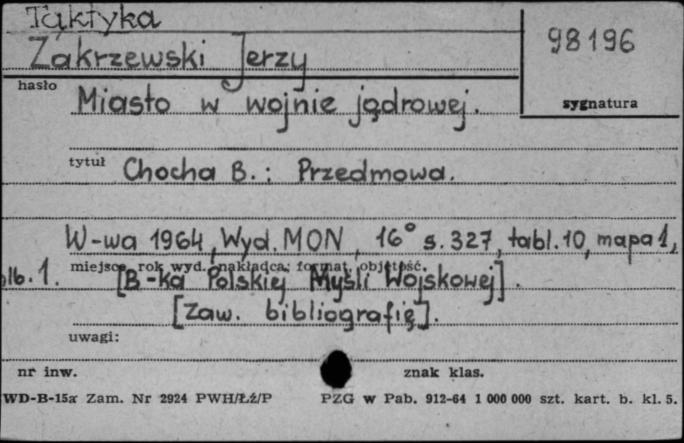 Taktyka
98196
Zakrzewski Jerzy
hasło
Miasto w wojnie jądrowej.
sygnatura
tytuł
Chocha B.: Przedmowa.
W-wa 1964, Wyd. MON, 16° s. 327, tabl. 10, mapa 1,
miejsce, rok wyd. nakładca; format, objętość.
lb. 1. [B-ka Polskiej Myśli Wojskowej].
[Zaw. bibliografię].
uwagi:
nr inw. znak klas.
WD-B-15a Zam. Nr 2924 PWH/Łź/P PZG w Pab. 912-64 1 000 000 szt. kart. b. kl. 5.